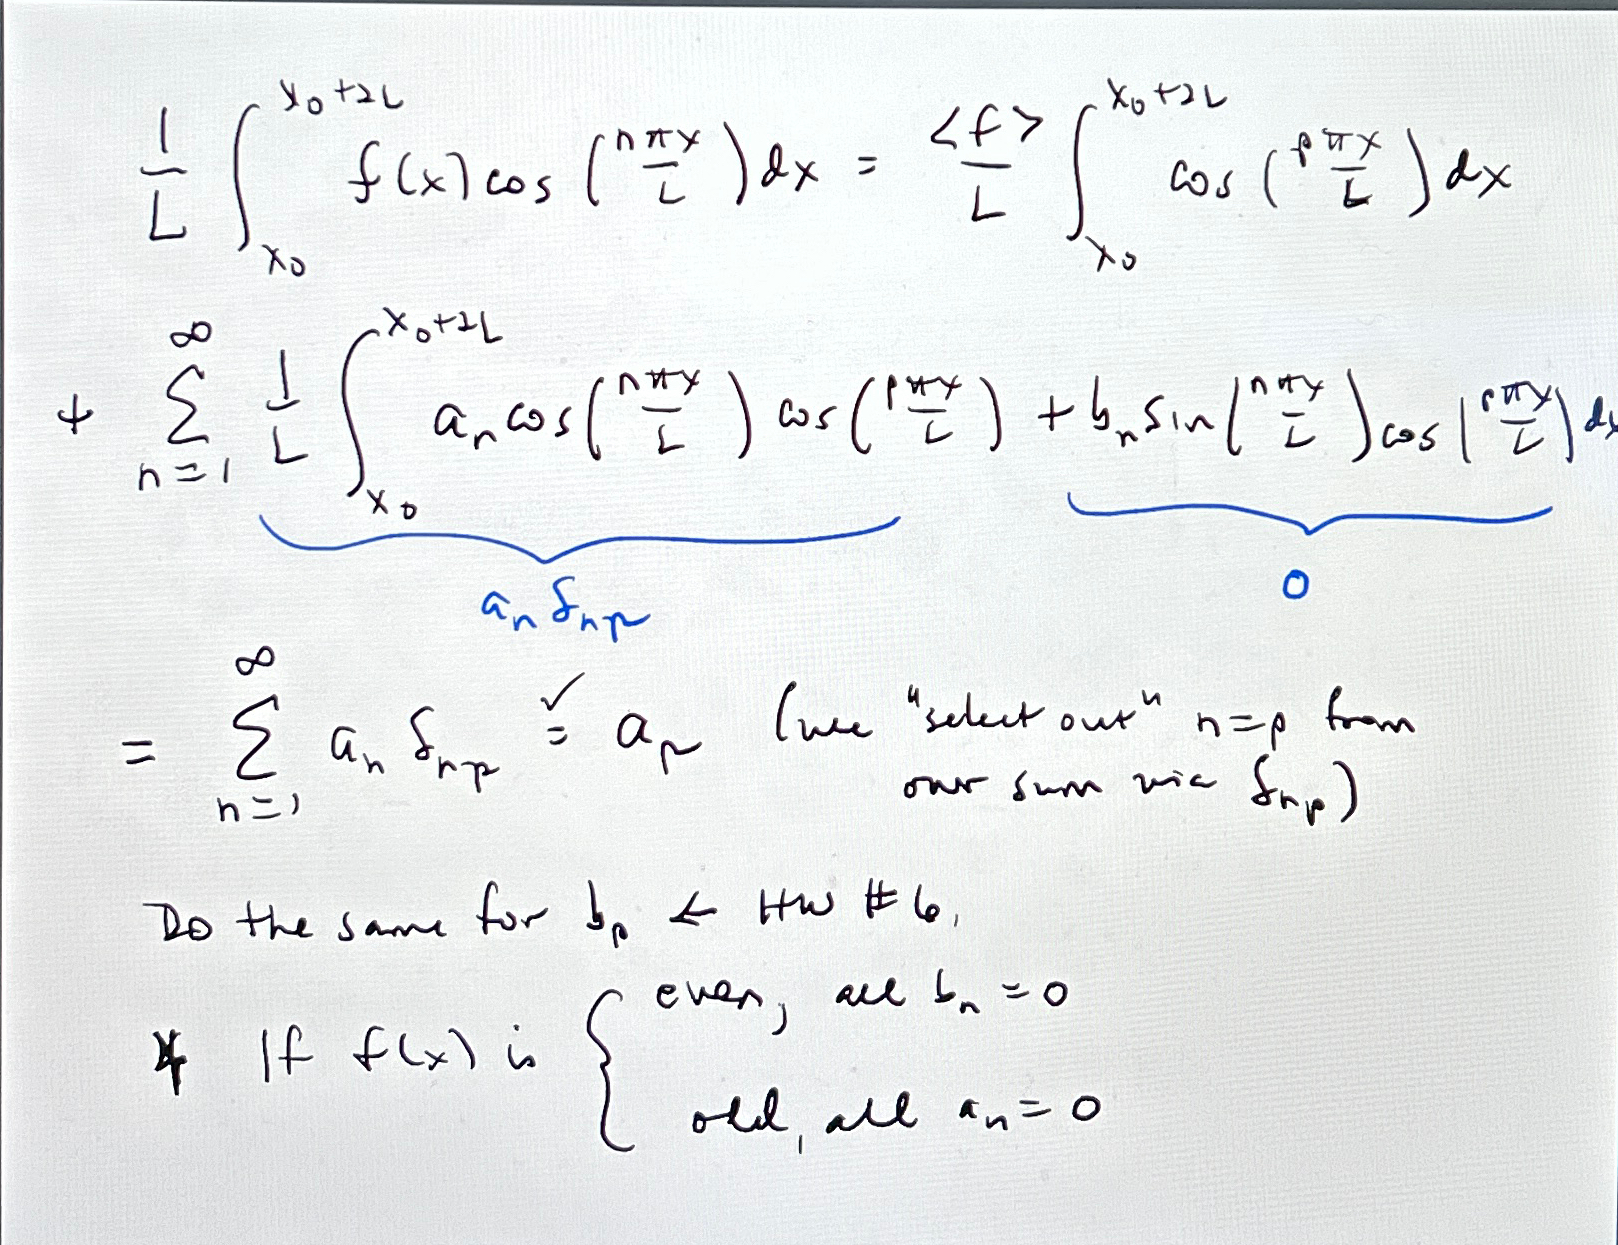 1/L ∫_{x₀}^{x₀+2L} f(x) cos(nπx/L) dx = <f>/L ∫_{x₀}^{x₀+2L} cos(pπx/L) dx
+ ∑_{n=1}^{∞} 1/L ∫_{x₀}^{x₀+2L} aₙ cos(nπx/L) cos(pπx/L) + bₙ sin(nπx/L) cos(pπx/L) dx
aₙ δₙₚ 0
= ∑_{n=1}^{∞} aₙ δₙₚ =✓ aₚ (we "select out" n=p from
our sum via δₙₚ)
Do the same for bₚ ← HW #6.
* If f(x) is { even, all bₙ = 0
odd, all aₙ = 0